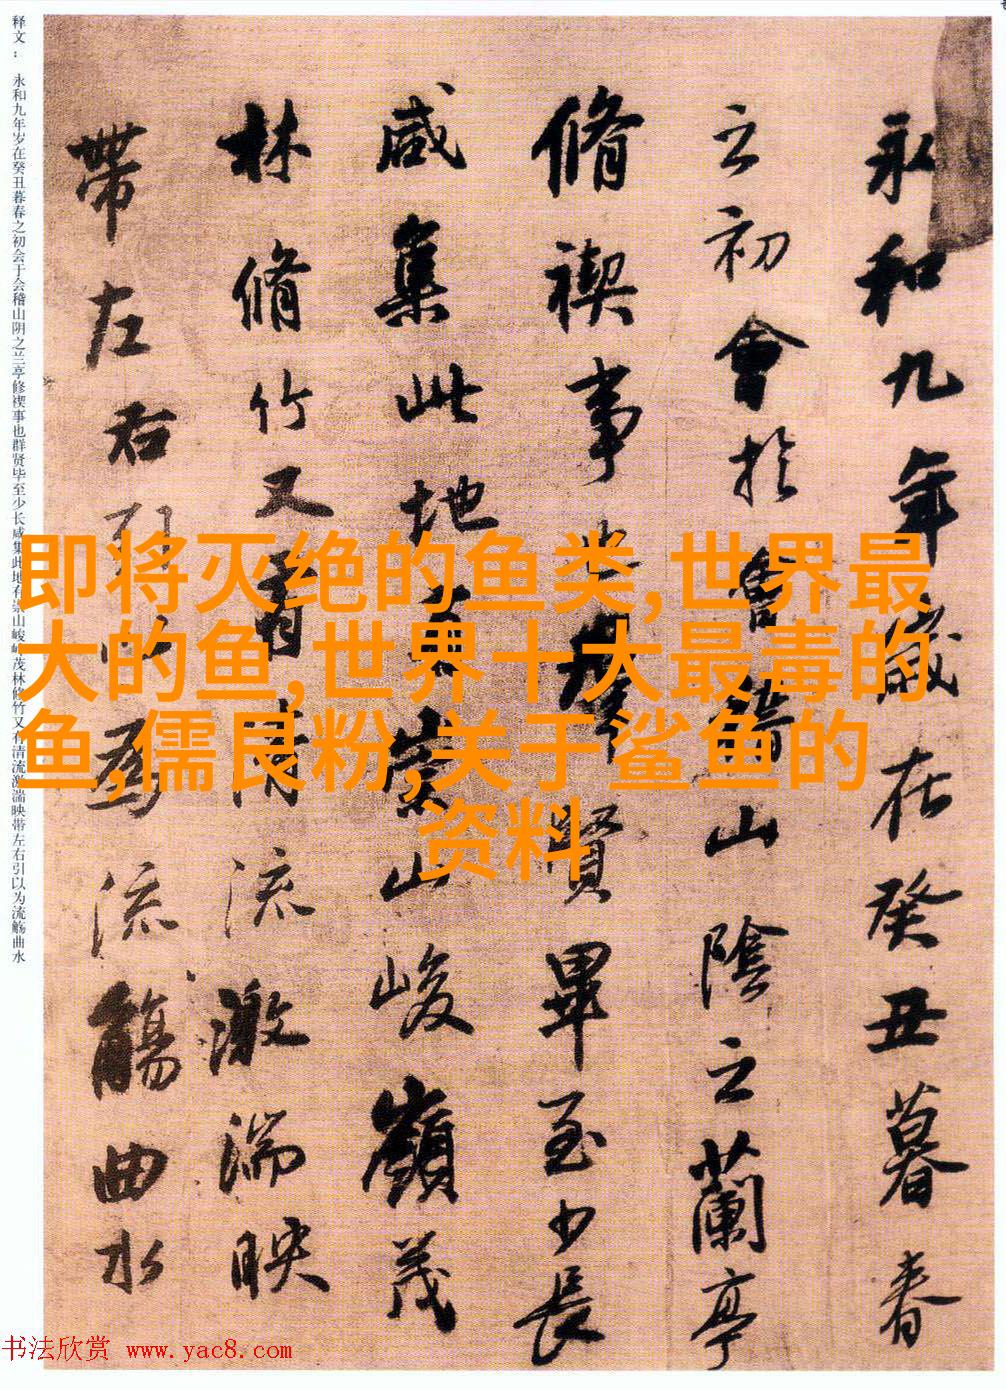 永和九年歲在癸丑暮春
之初會於會稽山陰之蘭亭
脩禊事也羣賢畢至少長
咸集此地有崇山峻嶺茂
林脩竹又有清流激湍映
帶左右引以為流觴曲水
释文： 永和九年岁在癸丑暮春之初会于会稽山阴之兰亭修禊事也群贤毕至少长咸集此地有崇山峻岭茂林修竹又有清流激湍映带左右引以为流觞曲水
即将灭绝的鱼类,世界最
大的鱼,世界十大最毒的
鱼,儒艮粉,关于鲨鱼的
资料
书法欣赏 www.yac8.com